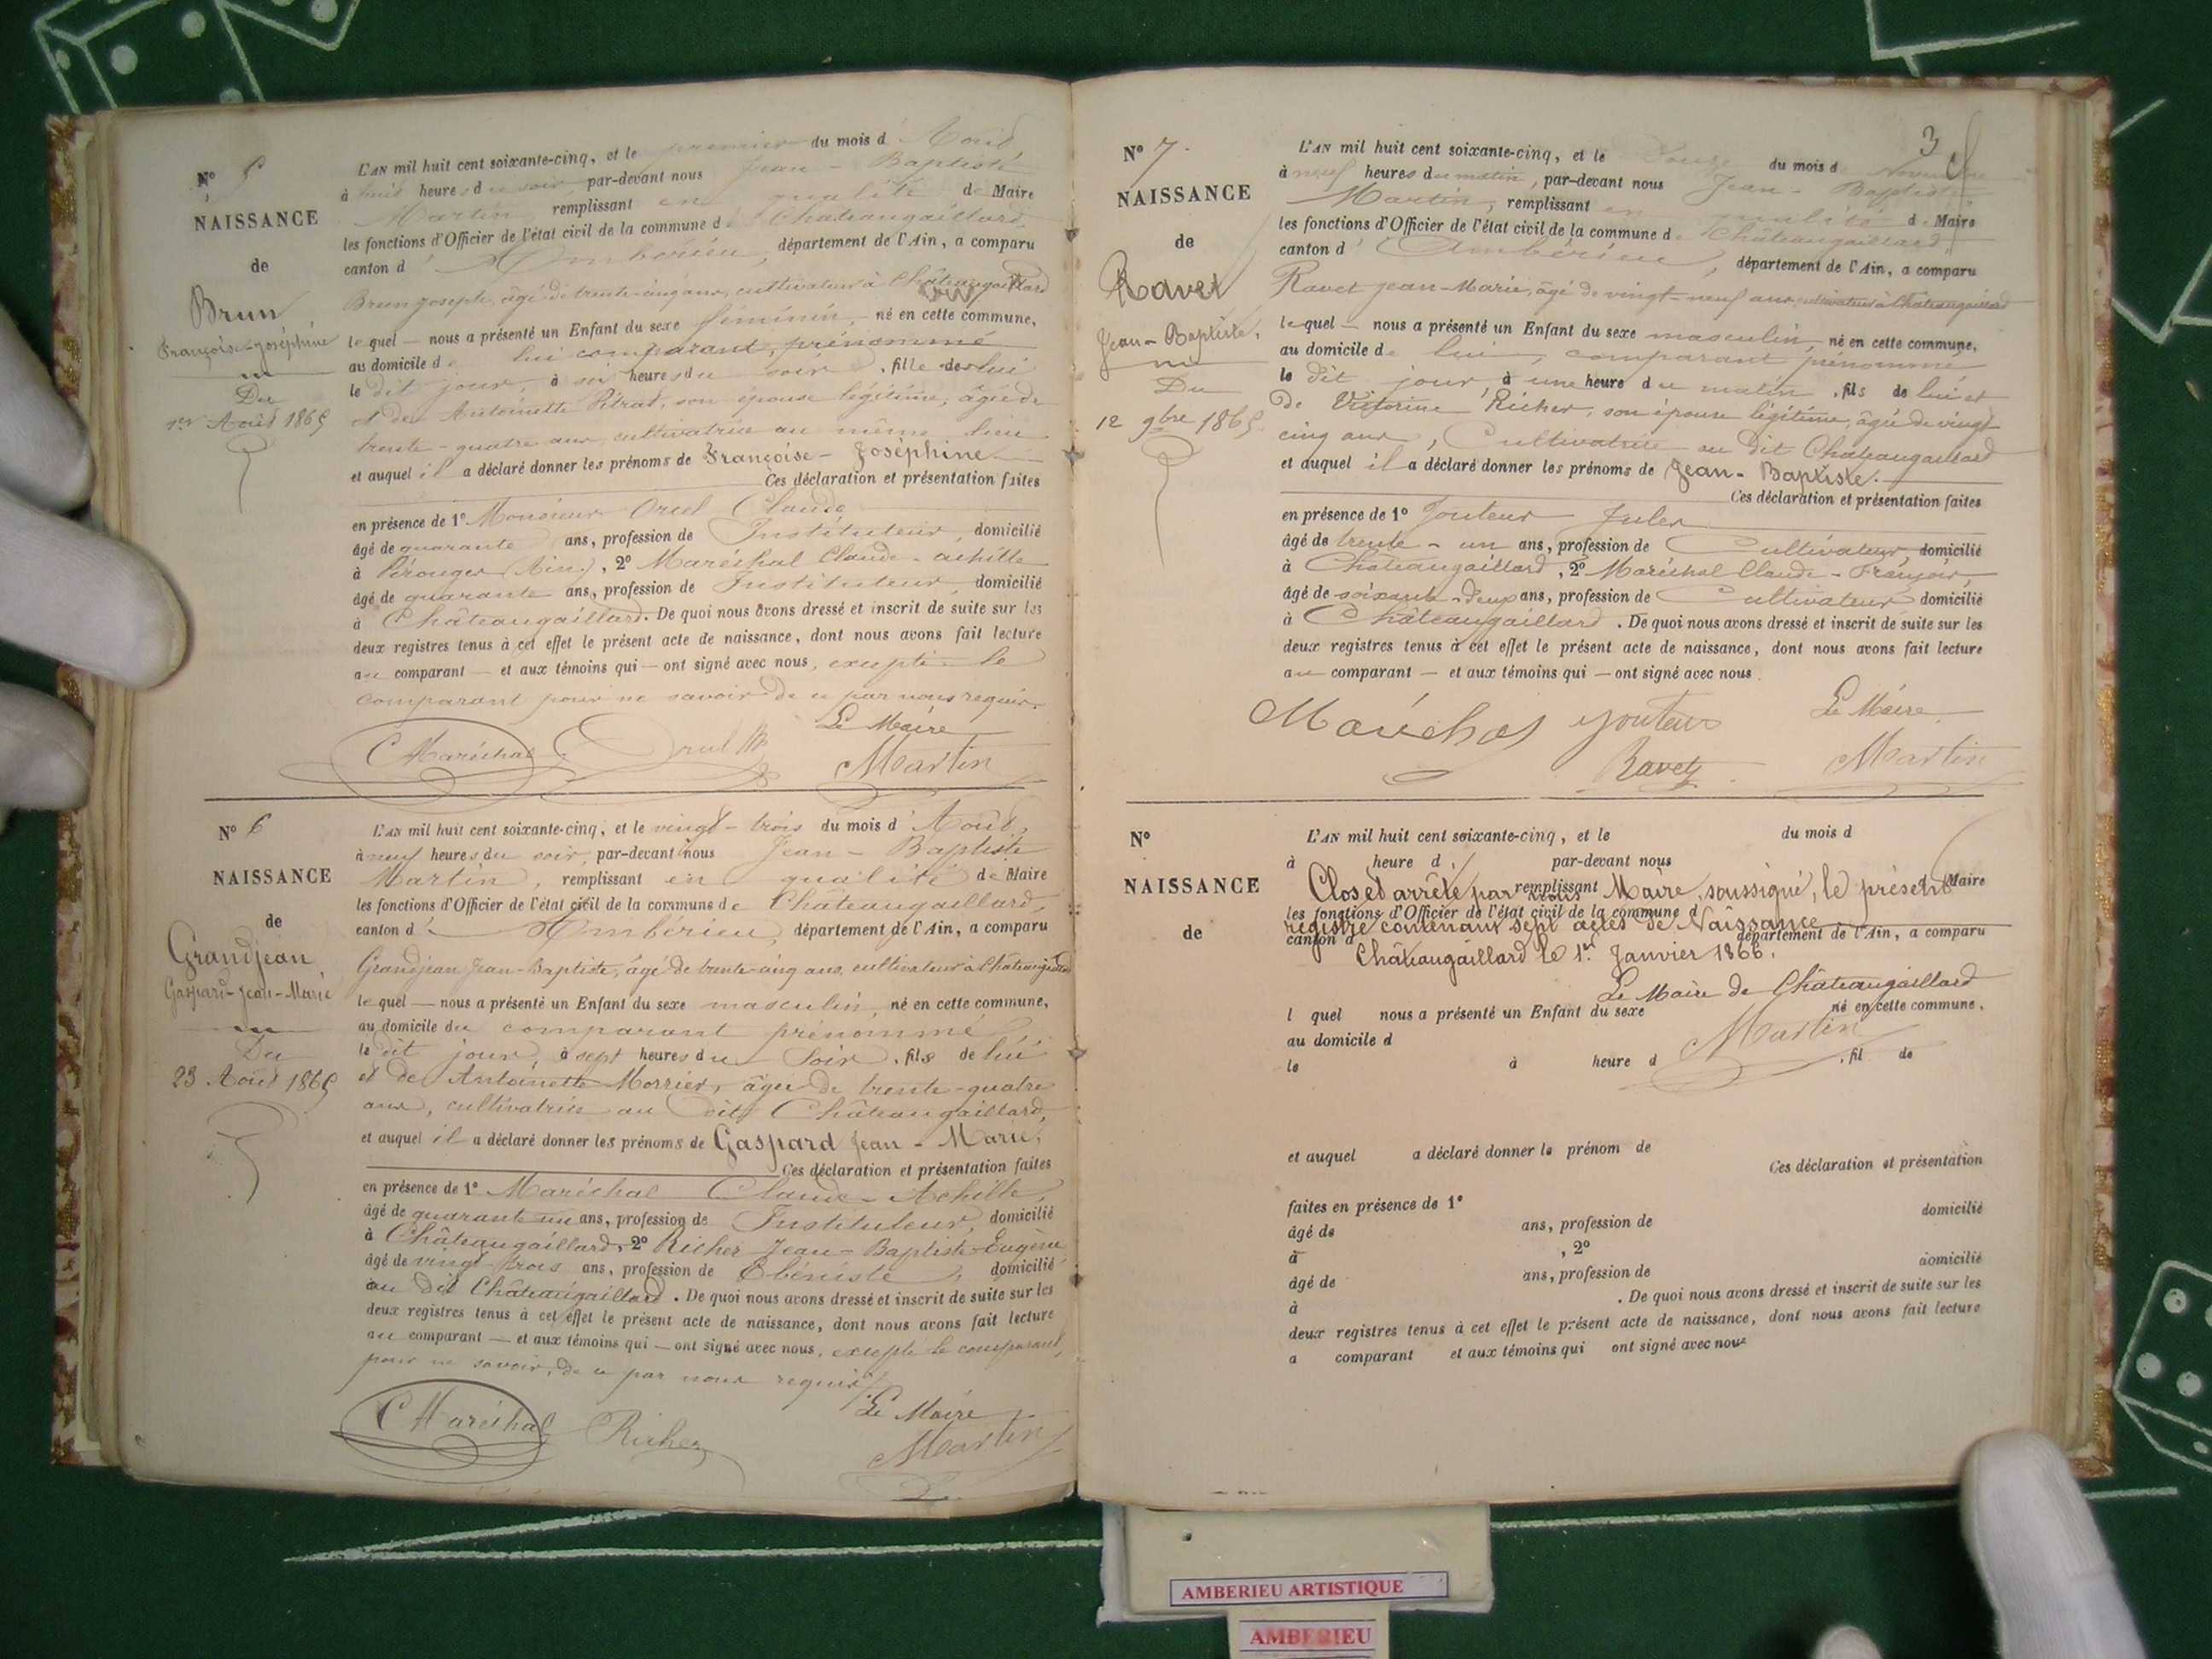 N° 5
NAISSANCE
de
Brun
Françoise-Joséphine
Du
1er Août 1865
L'AN mil huit cent soixante-cinq, et le premier du mois d'Août
à huit heures du soir, par-devant nous Jean-Baptiste
Martin, remplissant en qualité de Maire
les fonctions d'Officier de l'état civil de la commune de Châteaugaillard,
canton d'Ambérieu, département de l'Ain, a comparu
Brun Joseph, âgé de trente-cinq ans, cultivateur à Châteaugaillard
lequel — nous a présenté un Enfant du sexe féminin, né en cette commune,
au domicile de lui comparant, prénommé
le dit jour, à six heures du soir, fille de lui
et de Antoinette Pitrat, son épouse légitime, âgée de
trente-quatre ans, cultivatrice au même lieu
et auquel il a déclaré donner les prénoms de Françoise-Joséphine
Ces déclaration et présentation faites
en présence de 1° Monsieur Orsel Claude
âgé de quarante ans, profession de Instituteur, domicilié
à Pérouges (Ain), 2° Maréchal Claude-achille
âgé de quarante ans, profession de Instituteur domicilié
à Châteaugaillard. De quoi nous avons dressé et inscrit de suite sur les
deux registres tenus à cet effet le présent acte de naissance, dont nous avons fait lecture
au comparant — et aux témoins qui — ont signé avec nous, excepté le
comparant pour ne savoir de ce par nous requis.
Le Maire
C Maréchal Martin
N° 6
NAISSANCE
de
Grandjean
Gaspard-Jean-Marie
Du
23 Août 1865
L'AN mil huit cent soixante-cinq, et le vingt-trois du mois d'Août,
à neuf heures du soir, par-devant nous Jean-Baptiste
Martin, remplissant en qualité de Maire
les fonctions d'Officier de l'état civil de la commune de Châteaugaillard,
canton d'Ambérieu, département de l'Ain, a comparu
Grandjean Jean-Baptiste, âgé de trente-cinq ans, cultivateur à Châteaugaillard
lequel — nous a présenté un Enfant du sexe masculin, né en cette commune,
au domicile du comparant prénommé
le dit jour, à sept heures du Soir, fils de lui
et de Antoinette Morrier, âgée de trente-quatre
ans, cultivatrice au dit Châteaugaillard,
et auquel il a déclaré donner les prénoms de Gaspard Jean-Marie,
Ces déclaration et présentation faites
en présence de 1° Maréchal Claude-Achille,
âgé de quarante un ans, profession de Instituteur, domicilié
à Châteaugaillard, 2° Richer Jean-Baptiste-Eugène
âgé de vingt trois ans, profession de Ebéniste, domicilié
au dit Châteaugaillard. De quoi nous avons dressé et inscrit de suite sur les
deux registres tenus à cet effet le présent acte de naissance, dont nous avons fait lecture
au comparant — et aux témoins qui — ont signé avec nous, excepté le comparant,
pour ne savoir, de ce par nous requis.
Le Maire
C Maréchal Richer Martin
3
N° 7.
NAISSANCE
de
Ravet
Jean-Baptiste.
Du
12 9bre 1865
L'AN mil huit cent soixante-cinq, et le Douze du mois de Novembre
à neuf heures du matin, par-devant nous Jean-Baptiste
Martin, remplissant en qualité de Maire
les fonctions d'Officier de l'état civil de la commune de Châteaugaillard,
canton d'Ambérieu, département de l'Ain, a comparu
Ravet Jean-Marie, âgé de vingt-neuf ans, cultivateur à Châteaugaillard
lequel — nous a présenté un Enfant du sexe masculin, né en cette commune,
au domicile de lui, comparant prénommé
le dit jour, à une heure du matin, fils de lui et
de Victorine Richer, son épouse légitime, âgée de vingt
cinq ans, Cultivatrice au dit Châteaugaillard
et auquel il a déclaré donner les prénoms de Jean-Baptiste.
Ces déclaration et présentation faites
en présence de 1° Jouteur Jules
âgé de trente-un ans, profession de Cultivateur, domicilié
à Châteaugaillard, 2° Maréchal Claude-François,
âgé de soixante-deux ans, profession de Cultivateur domicilié
à Châteaugaillard. De quoi nous avons dressé et inscrit de suite sur les
deux registres tenus à cet effet le présent acte de naissance, dont nous avons fait lecture
au comparant — et aux témoins qui — ont signé avec nous.
Le Maire
Maréchal Jouteur
Ravet Martin
N°
NAISSANCE
de
L'AN mil huit cent soixante-cinq, et le du mois d
à heure d par-devant nous
remplissant Maire
Clos et arrêté par nous Maire, soussigné, le présent
les fonctions d'Officier de l'état civil de la commune d
registre contenant sept actes de Naissance
canton d département de l'Ain, a comparu
Châteaugaillard le 1er Janvier 1866.
Le Maire de Châteaugaillard
l quel nous a présenté un Enfant du sexe né en cette commune,
Martin
au domicile d
le à heure d , fil de
et auquel a déclaré donner le prénom de
Ces déclaration et présentation
faites en présence de 1°
âgé de ans, profession de domicilié
à , 2°
âgé de ans, profession de domicilié
à . De quoi nous avons dressé et inscrit de suite sur les
deux registres tenus à cet effet le présent acte de naissance, dont nous avons fait lecture
a comparant et aux témoins qui ont signé avec nous
AMBERIEU ARTISTIQUE
AMBERIEU